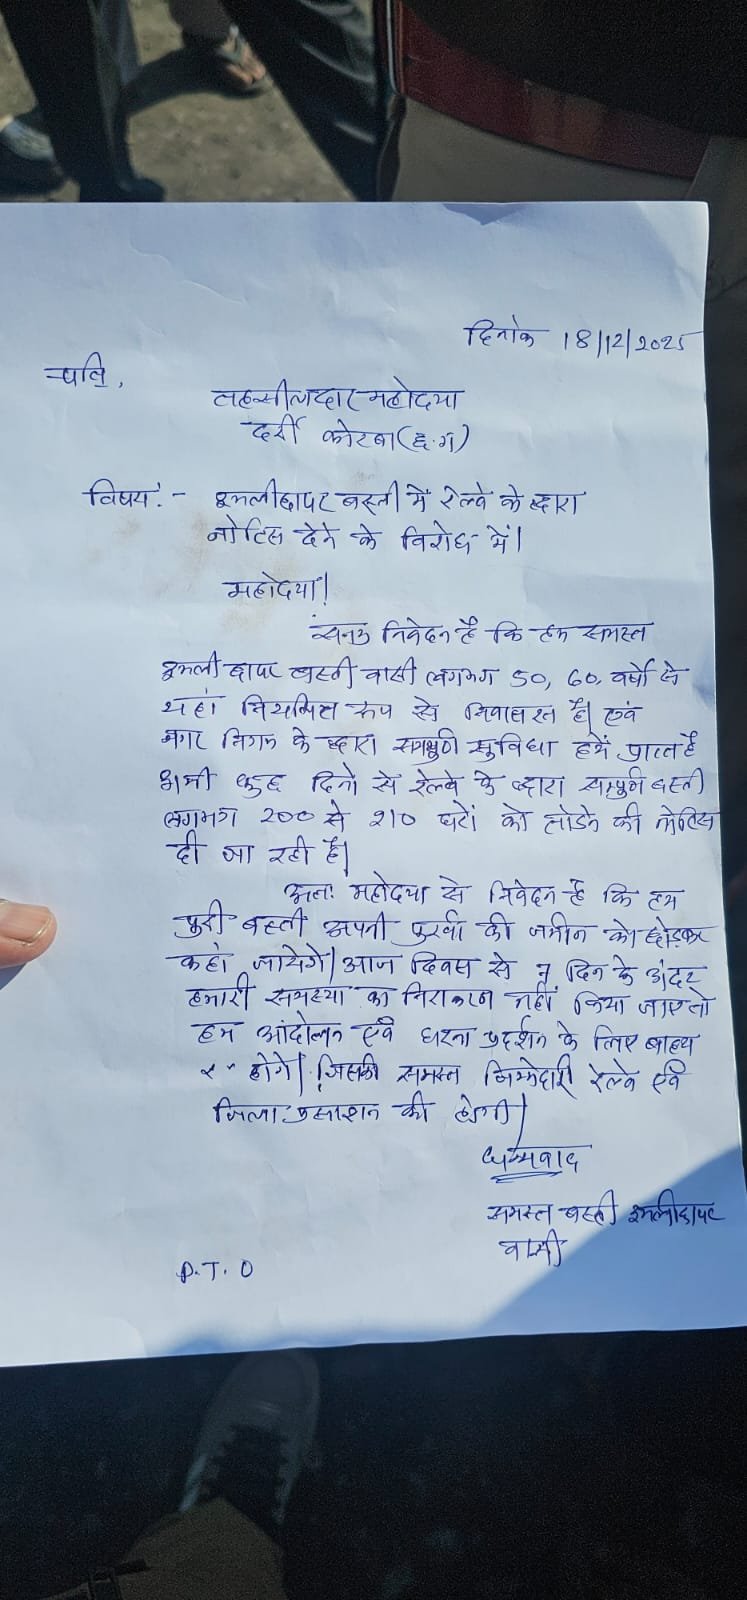 दिनांक 18/12/2025
प्रति,
तहसीलदार महोदया
दर्री कोरबा (छ.ग)
विषय:- इमलीछापर बस्ती में रेल्वे के द्वारा
नोटिस देने के विरोध में।
महोदया!
निवेदन है कि हम समस्त
इमली छापर बस्ती वासी लगभग 50, 60, वर्षो से
यहां नियमित रूप से निवासरत है। एवं
नगर निगम के द्वारा सम्पुर्ण सुविधा हमें प्राप्त है
अभी कुछ दिनो से रेल्वे के द्वारा सम्पुर्ण बस्ती
लगभग 200 से 210 घरों को तोडने की नोटिस
दी जा रही है।
अतः महोदया से निवेदन है कि हम
पुरी बस्ती अपनी पुरखों की जमीन को छोड़कर
कहां जायेगे। आज दिवस से दिन के अंदर
हमारी समस्या का निराकरण नहीं किया जाए तो
हम आंदोलन एवं धरना प्रदर्शन के लिए बाध्य
होगे। जिसकी समस्त जिम्मेदारी रेल्वे एवं
जिला प्रसाशन की होगी।
धन्यवाद
समस्त बस्ती इमलीछापर
वासी
P.T.O